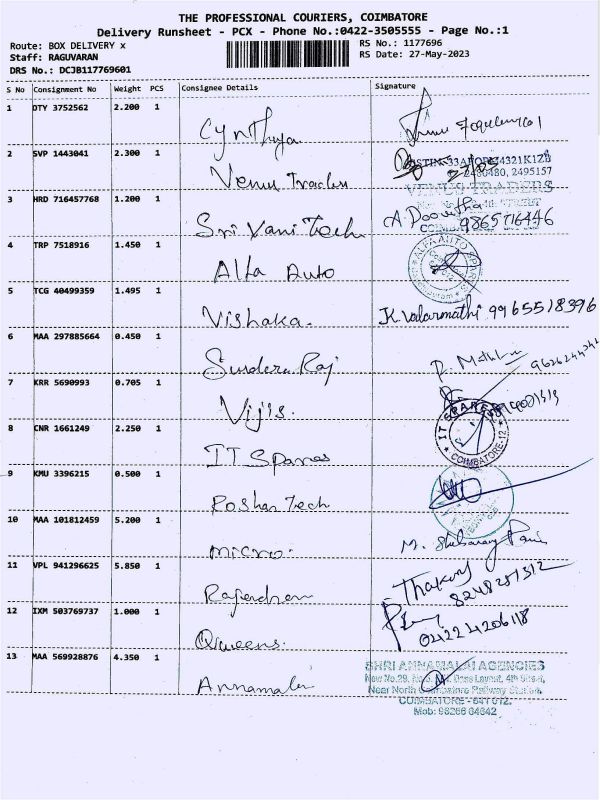 THE PROFESSIONAL COURIERS, COIMBATORE
Delivery Runsheet - PCX - Phone No.:0422-3505555 - Page No.:1
Route: BOX DELIVERY x
RS No.: 1177696
Staff: RAGUVARAN
RS Date: 27-May-2023
DRS No.: DCJB117769601
S No Consignment No Weight PCS Consignee Details Signature
1 DTY 3752562 2.200 1
Cynthya
2 SVP 1443041 2.300 1
2480480, 2495157
Venus Traders
VENUS TRADERS
3 HRD 716457768 1.200 1
Sri Vani Tech
9865716446
4 TRP 7518916 1.450 1
Alfa Auto
ALFA AUTO SPARES
5 TCG 40499359 1.495 1
Vishaka.
K. Valarmathi 9965518396
6 MAA 297885664 0.450 1
Sundera Raj
7 KRR 5690993 0.705 1
Vijis.
8 CNR 1661249 2.250 1
IT Spares
IT SPARES
COIMBATORE-12
9 KMU 3396215 0.500 1
Roshan Tech
10 MAA 101812459 5.200 1
micro.
M.
11 VPL 941296625 5.850 1
Rajendran
Thakur
8248251312
12 IXM 503769737 1.000 1
Queens.
04224206118
13 MAA 569928876 4.350 1
Annamalai
SHRI ANNAMALAI AGENCIES
New No.29, Layout, 4th Street,
Near North Coimbatore Railway Station,
COIMBATORE - 641 012.
Mob: 98266 64642